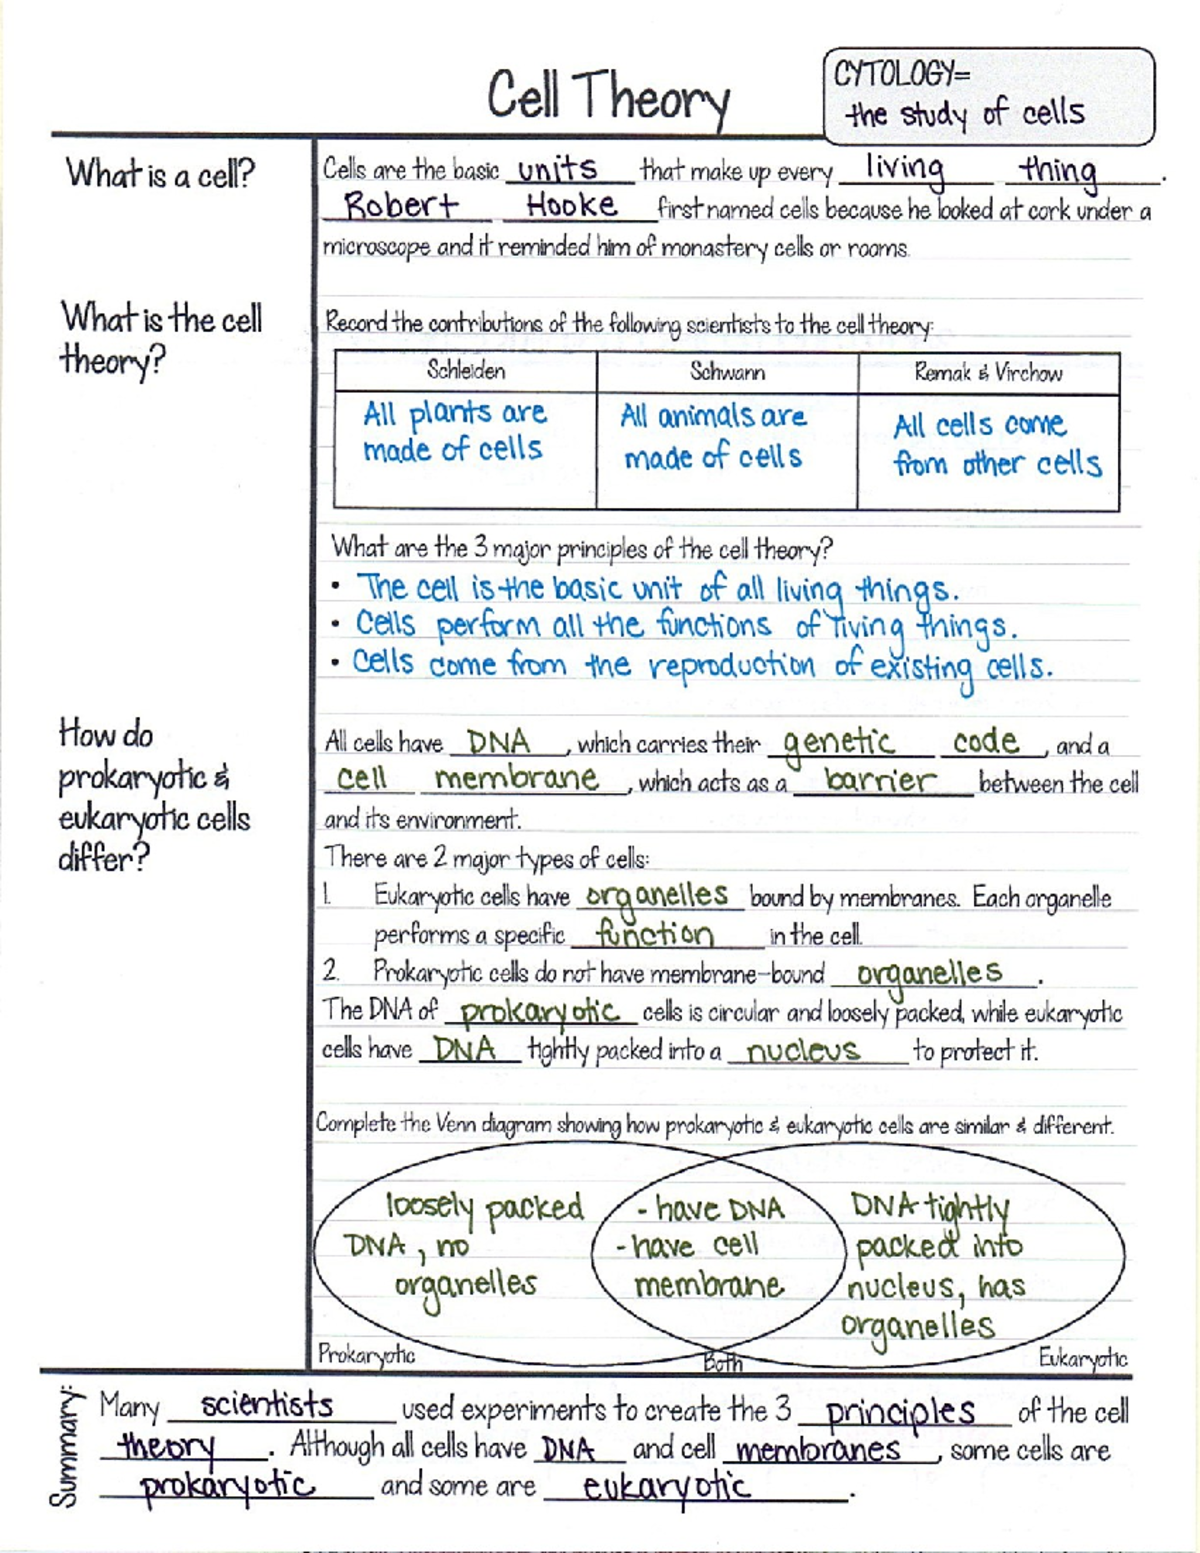 Cell Theory
CYTOLOGY=
the study of cells
What is a cell?
Cells are the basic units that make up every living thing.
Robert Hooke first named cells because he looked at cork under a
microscope and it reminded him of monastery cells or rooms.
What is the cell
theory?
Record the contributions of the following scientists to the cell theory:
Schleiden
Schwann
Remak & Virchow
All plants are
made of cells
All animals are
made of cells
All cells come
from other cells
What are the 3 major principles of the cell theory?
• The cell is the basic unit of all living things.
• Cells perform all the functions of living things.
• Cells come from the reproduction of existing cells.
How do
prokaryotic &
eukaryotic cells
differ?
All cells have DNA, which carries their genetic code, and a
cell membrane, which acts as a barrier between the cell
and its environment.
There are 2 major types of cells:
1. Eukaryotic cells have organelles bound by membranes. Each organelle
performs a specific function in the cell.
2. Prokaryotic cells do not have membrane-bound organelles.
The DNA of prokaryotic cells is circular and loosely packed, while eukaryotic
cells have DNA tightly packed into a nucleus to protect it.
Complete the Venn diagram showing how prokaryotic & eukaryotic cells are similar & different.
loosely packed
DNA, no
organelles
- have DNA
- have cell
membrane
DNA tightly
packed into
nucleus, has
organelles
Prokaryotic
Both
Eukaryotic
Summary:
Many scientists used experiments to create the 3 principles of the cell
theory. Although all cells have DNA and cell membranes, some cells are
prokaryotic and some are eukaryotic.